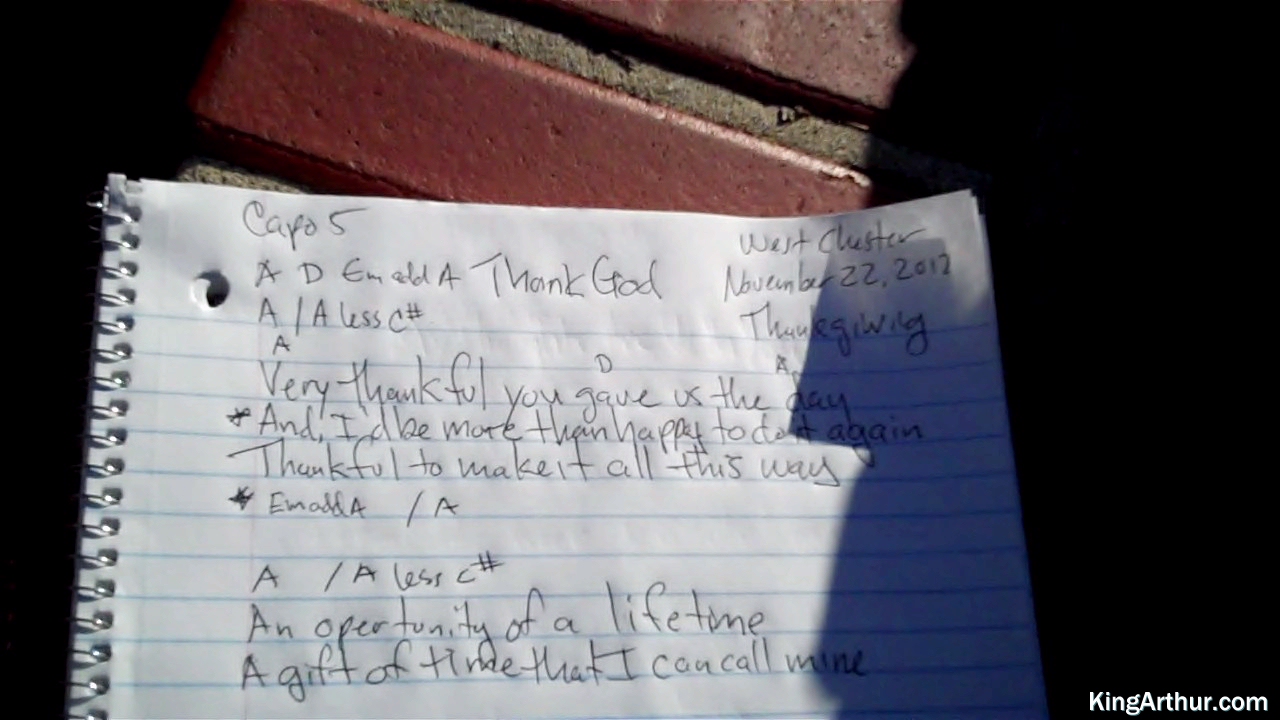 Capo 5
West Chester
A D Em add A Thank God
November 22, 2012
A / A less C#
Thanksgiving
A D A
Very thankful you gave us the day
* And, I'd be more than happy to do it again
Thankful to make it all this way
* Em add A / A
A / A less C#
An opertunity of a lifetime
A gift of time that I can call mine
KingArthur.com